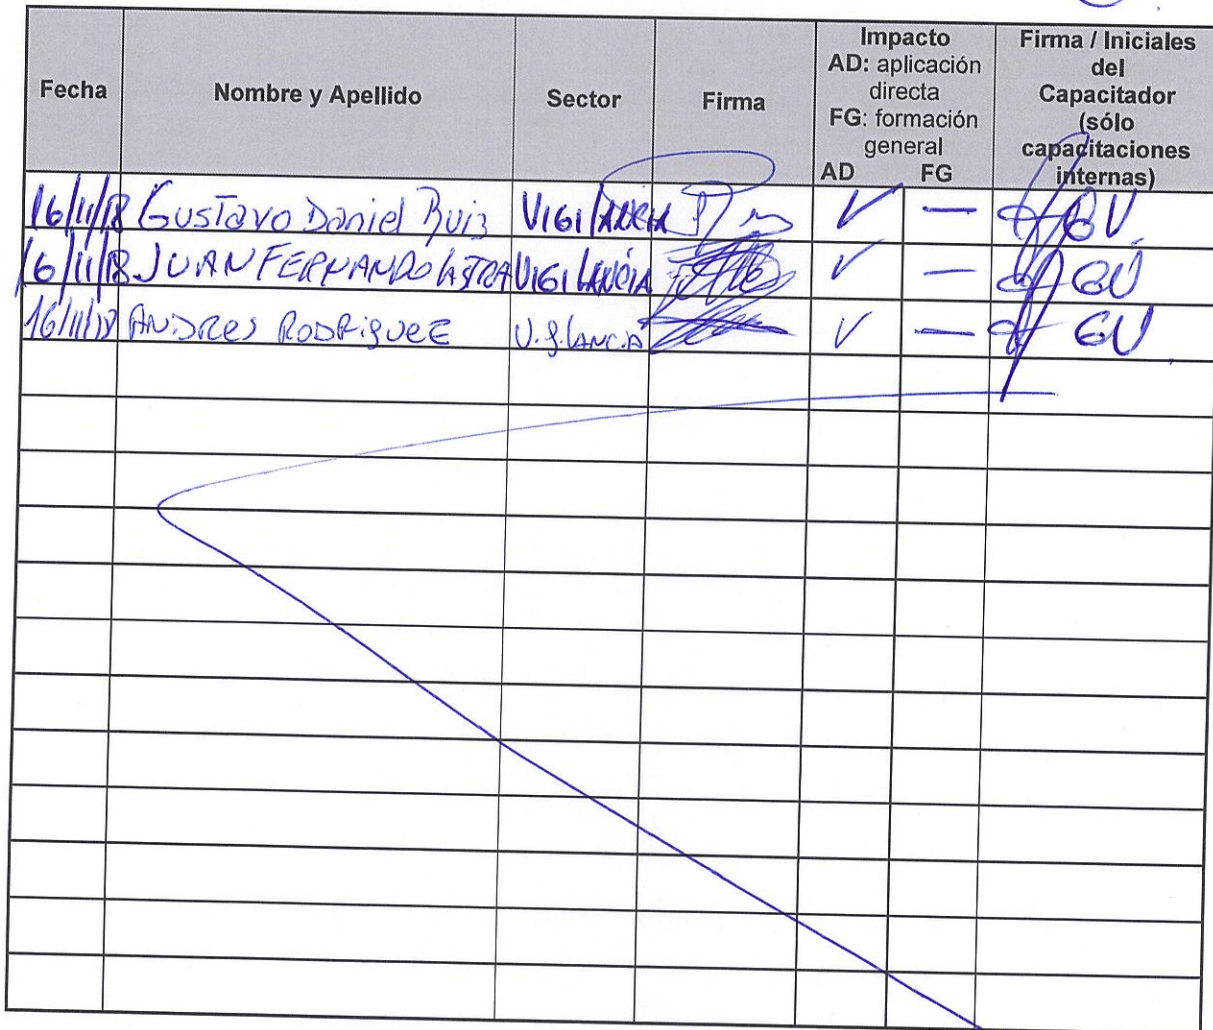 Fecha
Nombre y Apellido
Sector
Firma
Impacto
AD: aplicación
directa
FG: formación
general
AD FG
Firma / Iniciales
del
Capacitador
(sólo
capacitaciones
internas)
16/11/18 Gustavo Daniel Ruiz VIGILANCIA ✓ — GV.
16/11/18 JUAN FERNANDO LASTRA VIGILANCIA ✓ — GV
16/11/18 ANDRES RODRIGUEZ VigiLANCIA ✓ — GV